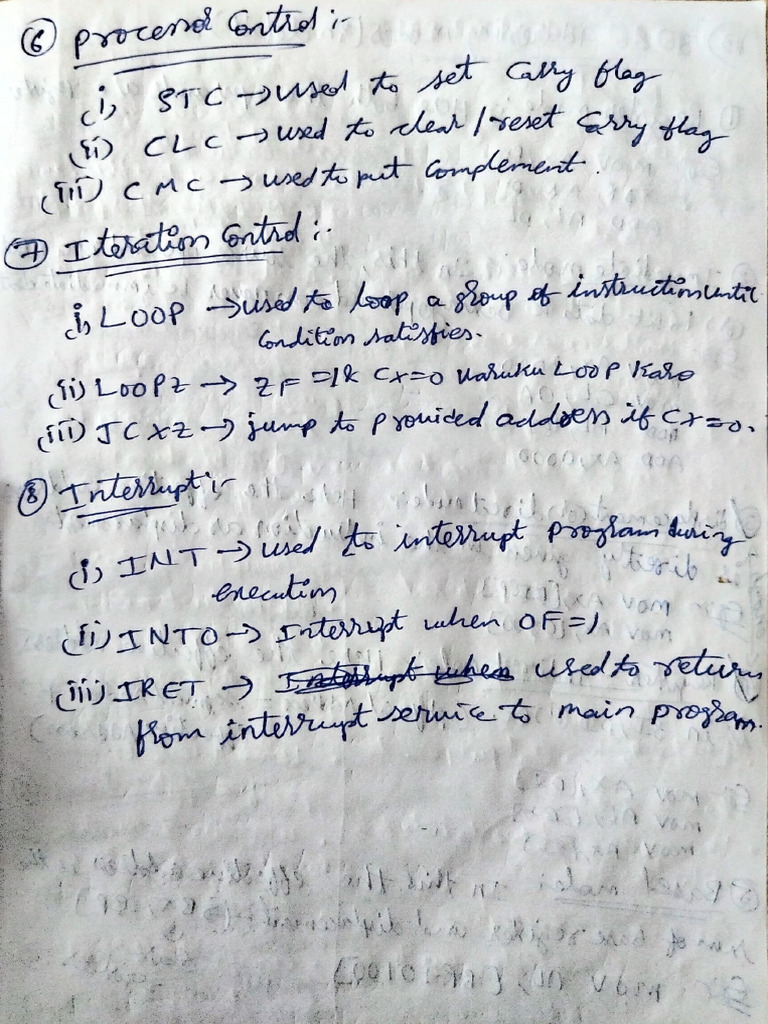 ⑥ Processor Control :-
(i) STC → used to set Carry flag
(ii) CLC → used to clear / reset Carry flag
(iii) CMC → used to put Complement.
⑦ Iteration Control :-
(i) LOOP → used to loop a group of instruction until
Condition satisfies.
(ii) LOOPZ → ZF =1 & CX=0 varuku LOOP Karo
(iii) JCXZ → jump to provided address if CX=0.
⑧ Interrupt :-
(i) INT → used to interrupt program during
execution
(ii) INTO → Interrupt when OF=1
(iii) IRET → Interrupt when used to return
from interrupt service to main program.